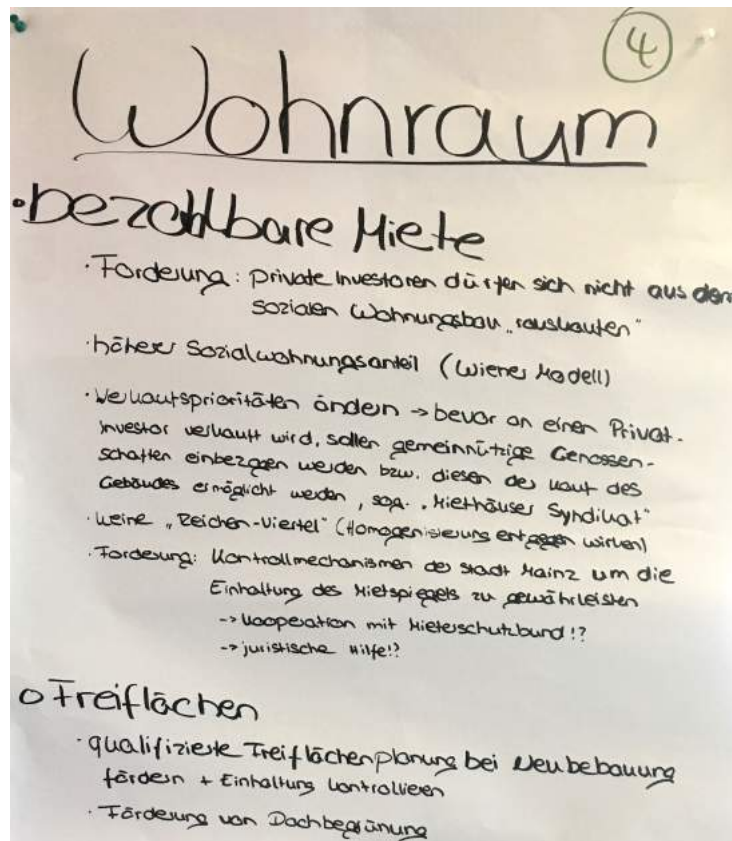 4
Wohnraum
· bezahlbare Miete
· Forderung: private Investoren dürfen sich nicht aus dem
sozialen Wohnungsbau „rauskaufen"
· höherer Sozialwohnungsanteil (Wiener Modell)
· Verkaufsprioritäten ändern -> bevor an einen Privat-
investor verkauft wird, sollen gemeinnützige Genossen-
schaften einbezogen werden bzw. diesen der Kauf des
Gebäudes ermöglicht werden, sog. „Miethäuser Syndikat"
· keine „Reichen-Viertel" (Homogenisierung entgegen wirken)
· Forderung: Kontrollmechanismen der Stadt Mainz um die
Einhaltung des Mietspiegels zu gewährleisten
-> Kooperation mit Mieterschutzbund!?
-> juristische Hilfe!?
o Freiflächen
· qualifizierte Freiflächenplanung bei Neubebauung
fördern + Einhaltung kontrollieren
· Förderung von Dachbegrünung